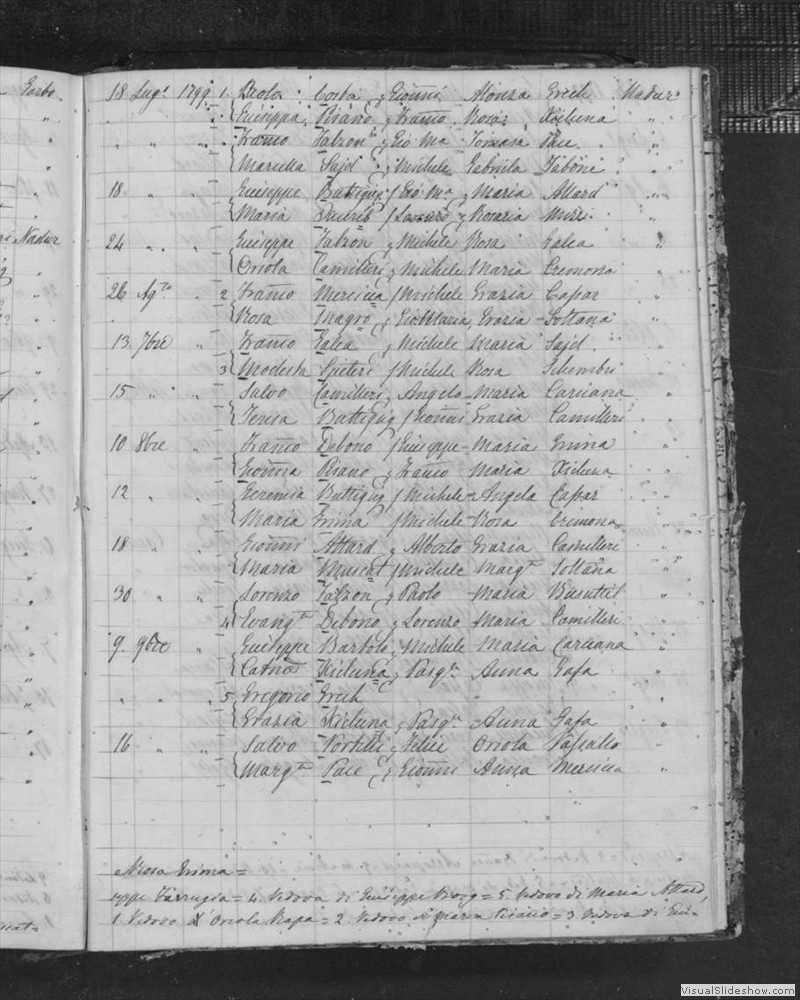 Garbo
18 Lug. 1799 1. Paolo Costa q Gioñni Alonza Grech Nadur
Giuseppa Pisano q Franco Rosa Xicluna "
" " " Franco Falzon q Gio Ma Tomasa Pace "
Marietta Said q Michele Gabriela Taboni "
18 " " Giuseppe Buttigieg / Gio Ma q Maria Attard "
Maria / Lazzaro q Rosaria Mizzi "
ri Nadur 24 " " Giuseppe Falzon q Michele Rosa Galea "
Oriola Camilleri q Michele Maria Cremona "
26 Ag.to " 2 Franco Mercieca / Michele Grazia Capar "
Rosa Magro q Gio Maria Grazia Sottana "
13 7bre " Franco Galea q Michele Maria Said "
3 Modesta Spiteri / Michele Rosa Schembri "
15 " " Salvo Camilleri q Angelo Maria Caruana "
Teresa Buttigieg / Gioñni Grazia Camilleri "
10 8bre " Franco Debono / Giuseppe Maria Grima "
Gioñna Pisano q Franco Maria Xicluna "
12 " " Geremia Buttigieg / Michele Angela Capar "
Maria Grima / Michele Rosa Cremona "
18 " " Gioñni Attard q Alberto Grazia Camilleri "
Maria Muscat / Michele Margta Sottana "
30 " " Lorenzo Falzon q Paolo Maria Busuttil "
4 Evangta Debono q Lorenzo Maria Camilleri "
9. 9bre " Giuseppe Bartolo q Michele Maria Caruana "
Catna Xicluna q Pasqle Anna Gafa "
" " " 5 Gregorio Grech
Grazia Xicluna q Pasqle Anna Gafa "
16 " " Salvo Portelli q Felice Oriola Vassallo "
Margta Pace q Gioñni Anna Mercieca "
Rosa Grima =
seppe Farrugia = 4. Vedova di Giuseppe Borg = 5. Vedovo di Maria Attard,
1. Vedovo di Oriola Rapa = 2. Vedovo di Maria Pisano = 3. Vedova di Giu-
VisualSlideshow.com